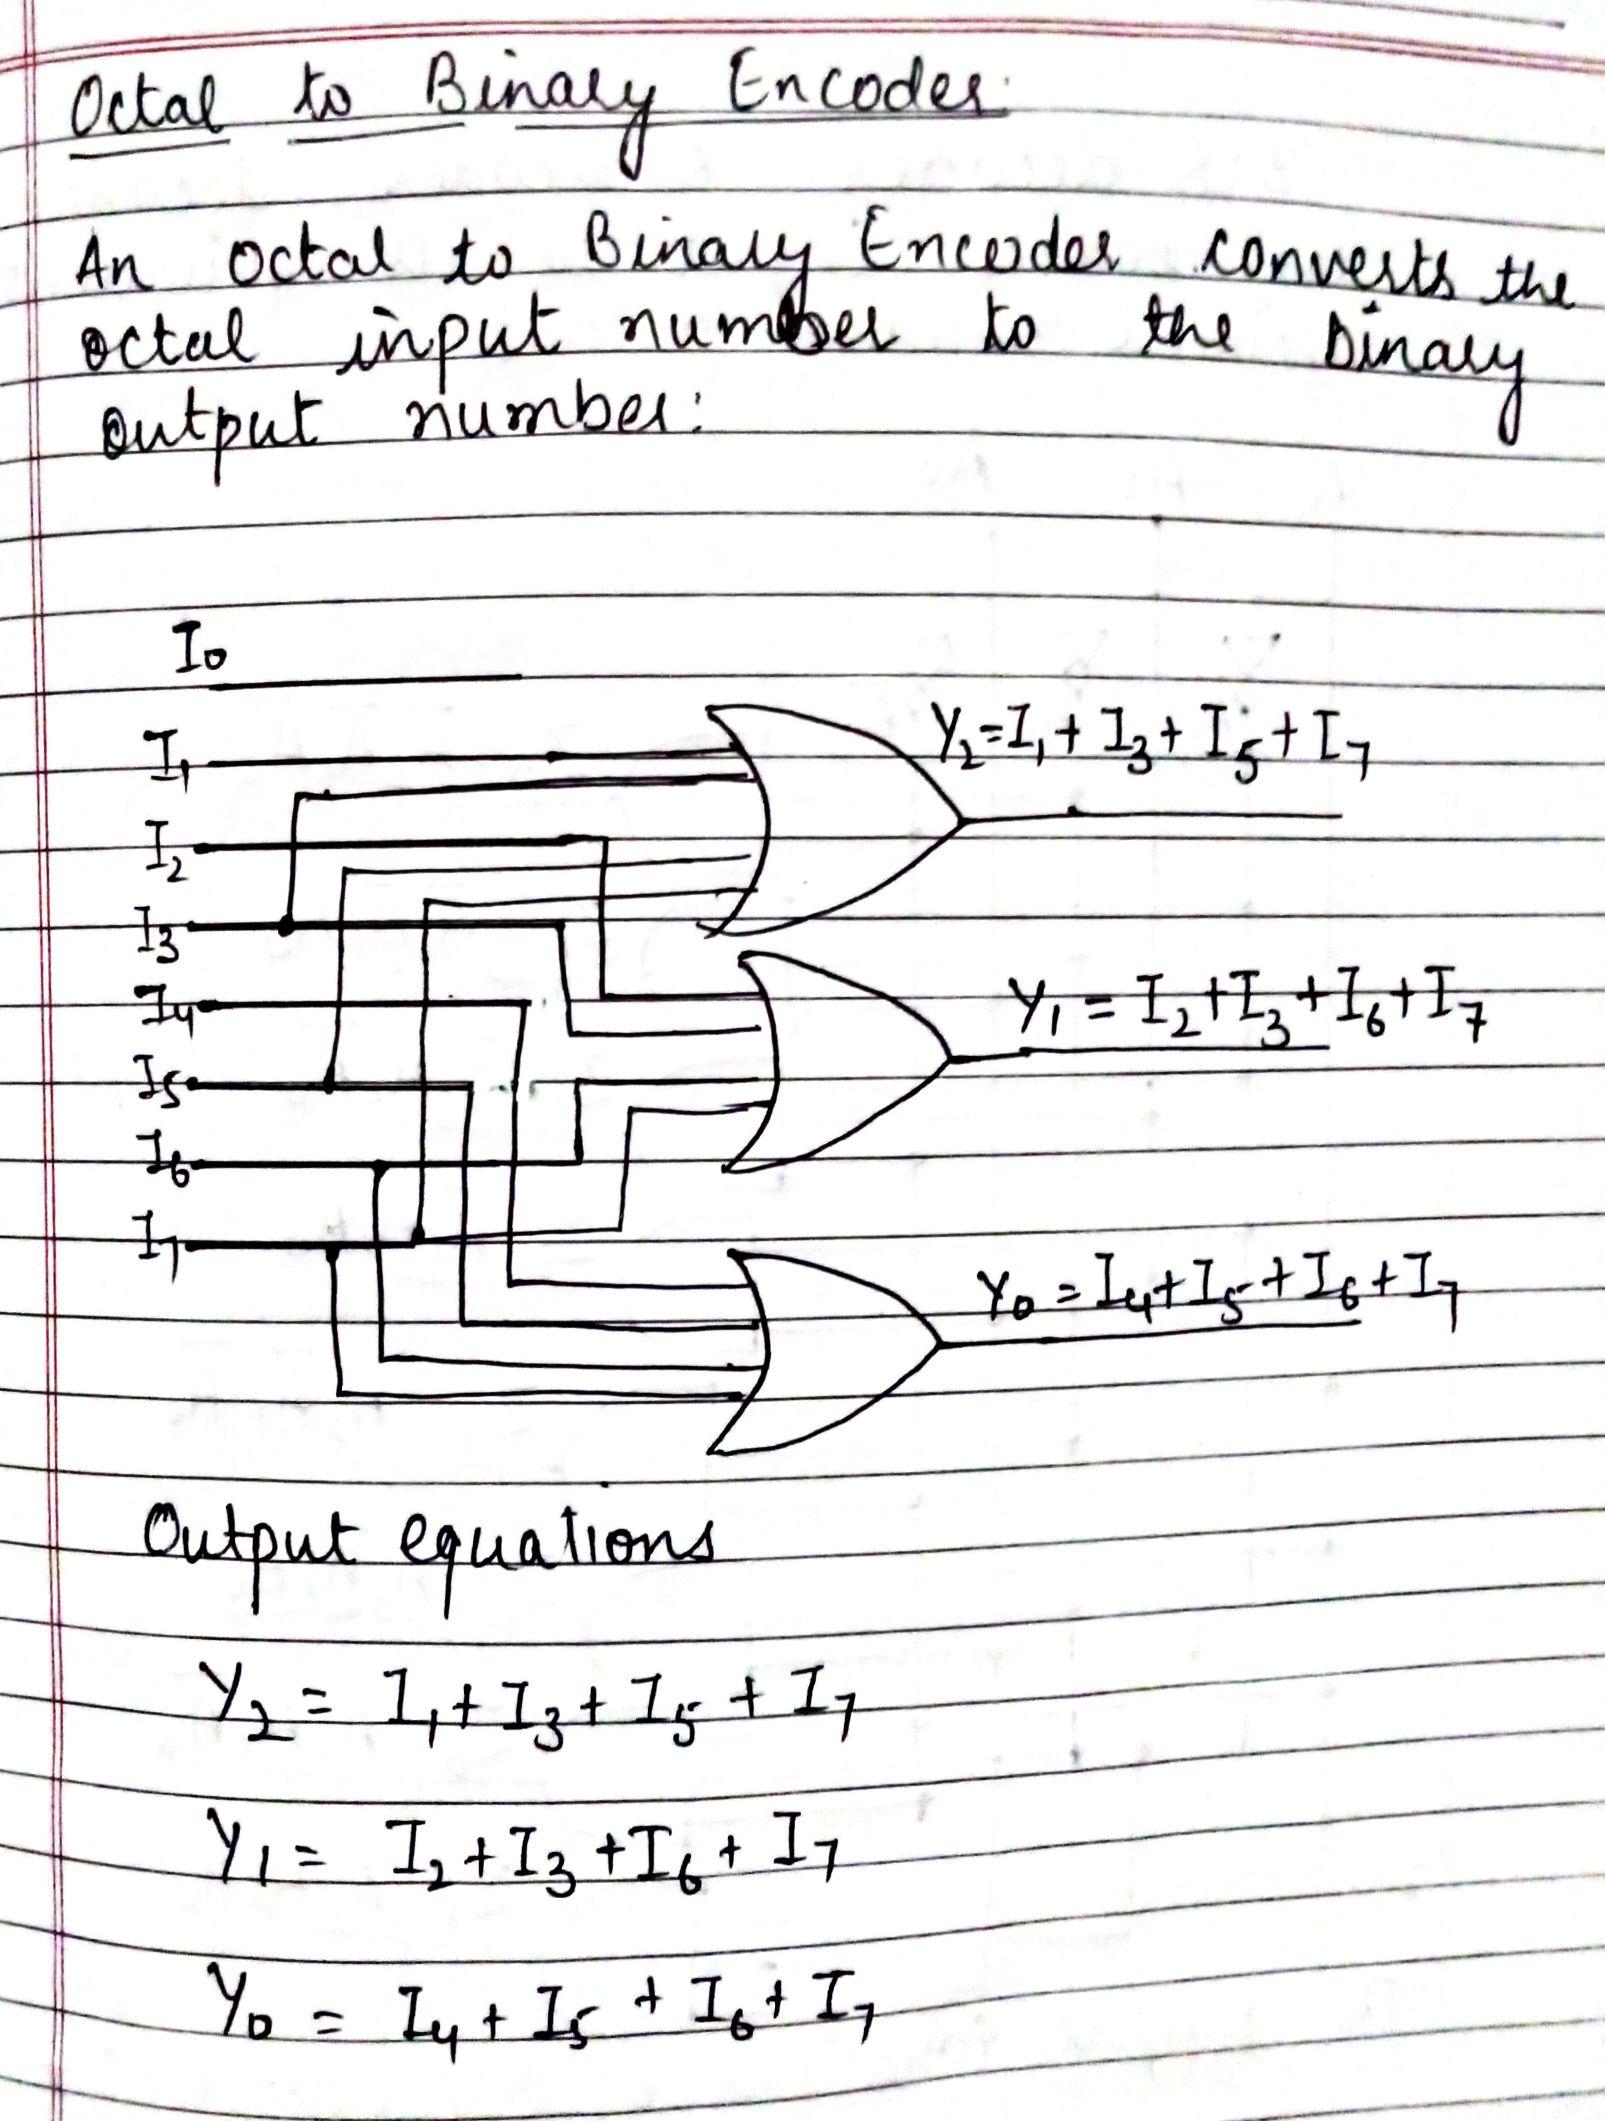 Octal to Binary Encoder
An octal to Binary Encoder converts the
octal input number to the binary
output number:
I₀
I₁
Y₂=I₁+I₃+I₅+I₇
I₂
I₃
I₄
Y₁ = I₂+I₃+I₆+I₇
I₅
I₆
I₇
Y₀ = I₄+I₅+I₆+I₇
Output equations
Y₂ = I₁+I₃+I₅+I₇
Y₁ = I₂+I₃+I₆+I₇
Y₀ = I₄+I₅+I₆+I₇